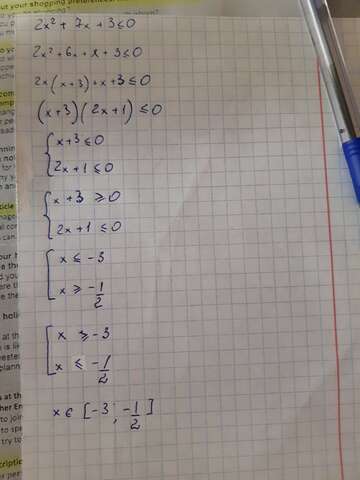 2x² + 7x + 3 ≤ 0
2x² + 6x + x + 3 ≤ 0
2x (x+3) + x + 3 ≤ 0
(x+3)(2x+1) ≤ 0
{ x+3 ≤ 0
2x+1 ≤ 0
{ x+3 ≥ 0
2x+1 ≤ 0
[ x ≤ -3
x ≥ -1/2
[ x ≥ -3
x ≤ -1/2
x ∈ [-3; -1/2]